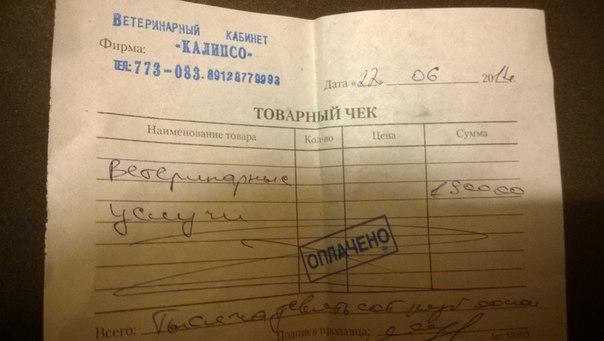 ВЕТЕРИНАРНЫЙ КАБИНЕТ
Фирма: -КАЛИПСО-
ТЕЛ: 773-083. 89128779993
Дата «22 06 2014
ТОВАРНЫЙ ЧЕК
Наименование товара Кол-во Цена Сумма
Ветеринарные 190000
услуги
ОПЛАЧЕНО
Всего: Тысяча девятьсот руб
Подпись продавца: